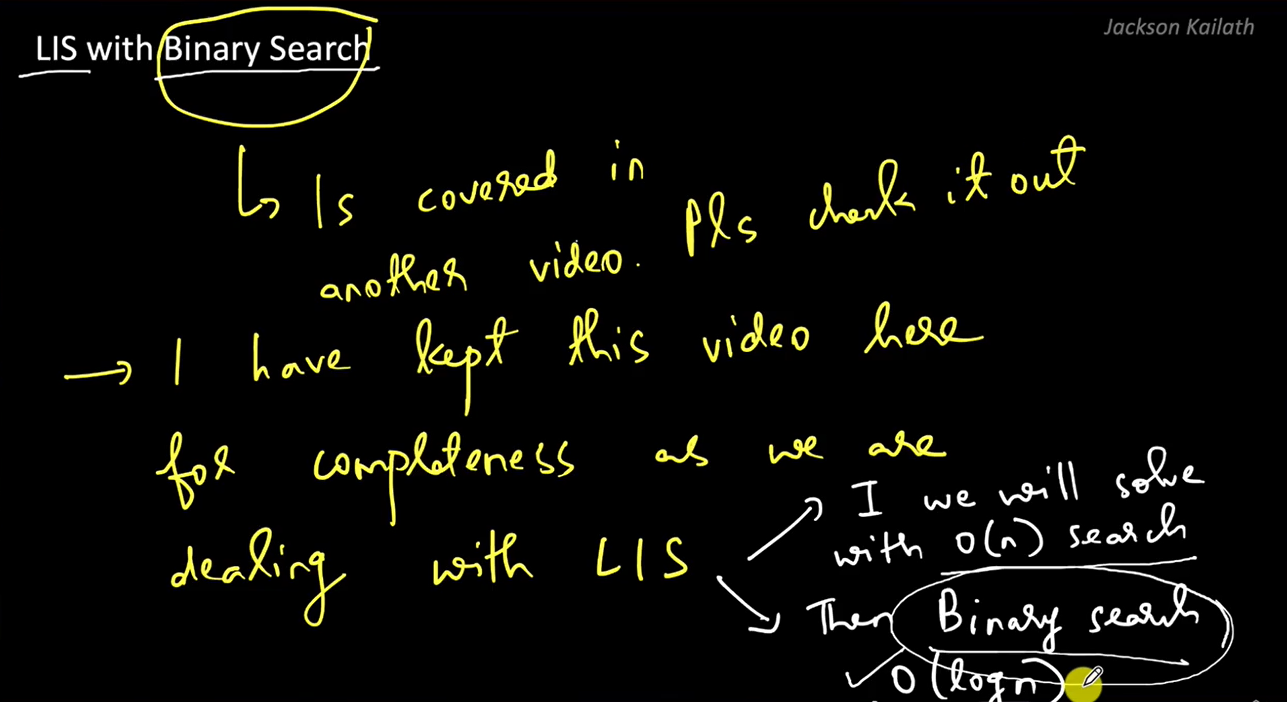 LIS with Binary Search
Jackson Kailath
Is covered in
another video. Pls check it out
I have kept this video here
for completeness as we are
dealing with LIS
I we will solve
with O(n) search
Then Binary search
O(logn)